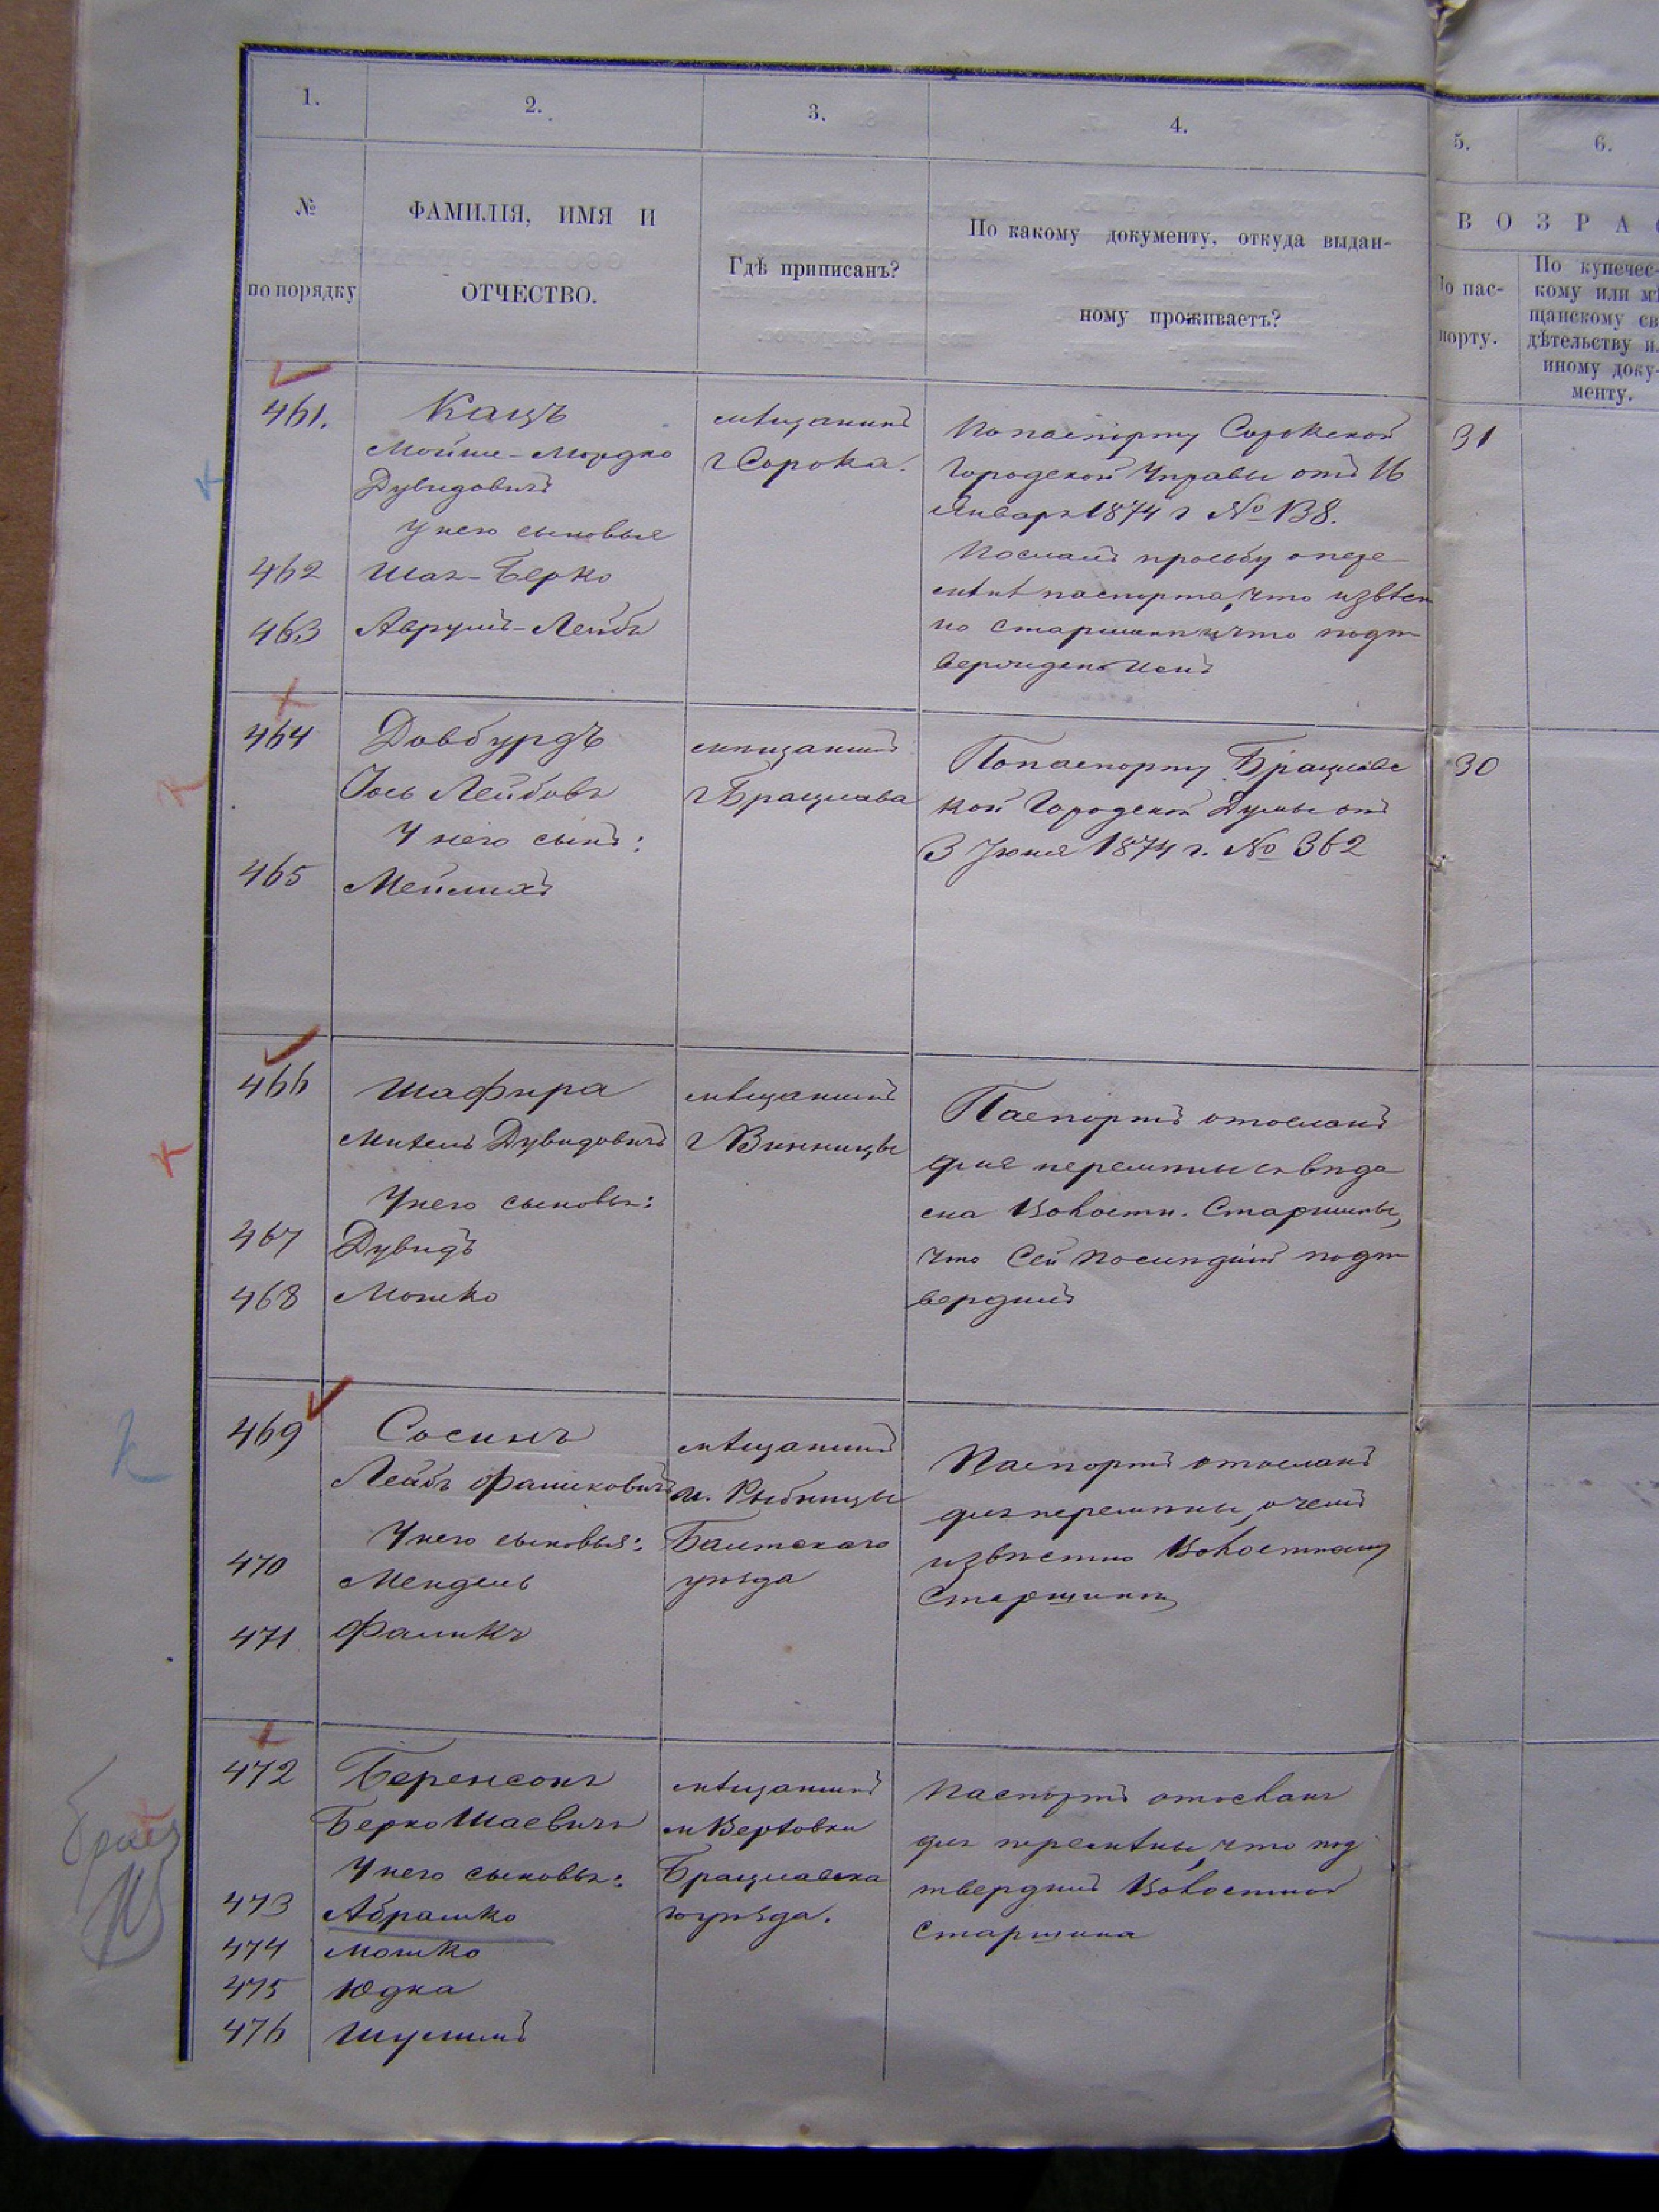 1.
2.
3.
4.
5.
6.
№
по порядку
ФАМИЛІЯ, ИМЯ И
ОТЧЕСТВО.
Гдѣ приписанъ?
По какому документу, откуда выдан-
ному проживаетъ?
ВОЗРА
По пас-
порту.
По купечес-
кому или мѣ
щанскому св
дѣтельству и
иному доку-
менту.
461.
Кацъ
Мойше-Мордко
Дувидовичъ
У него сыновья
462 Шая-Берко
463 Аврумъ-Лейбъ
мѣщанинъ
г Сорока.
По паспорту Сорокской
Городской Управы отъ 16
Января 1874 г № 138.
Послалъ прозьбу о пере
мѣнѣ паспорта, что извѣст
но старшинѣ что подт
31
464
Довбурдъ
Іось Лейбовъ
У него сынъ:
465 Мейлихъ
мѣщанинъ
г Брацлава
По паспорту Брацлавс
кой Городской Думы отъ
3 Іюня 1874 г. № 362
30
466
Шафира
Дувидовичъ
У него сыновья:
467 Дувидъ
468 Мошко
мѣщанинъ
г Винницы
Паспортъ отосланъ
для перемѣны
Волостн. Старшины,
что сей послѣдній подт
вердилъ
469
Сосинъ
Лейбъ Фаликовичъ
У него сыновья:
470 Мендель
471 Фаликъ
мѣщанинъ
м. Рыбницы
Балтскаго
уѣзда
Паспортъ отосланъ
для перемѣны, о чемъ
извѣстно Волостному
Старшинѣ
472
Беренсонъ
Берко Шаевичъ
У него сыновья:
473 Абрашко
474 Мошко
475 Юдка
476 Шулимъ
мѣщанинъ
м Верховки
Брацлавска
го уѣзда.
Паспортъ отосланъ
для перемѣны, что под
твердилъ Волостной
Старшина